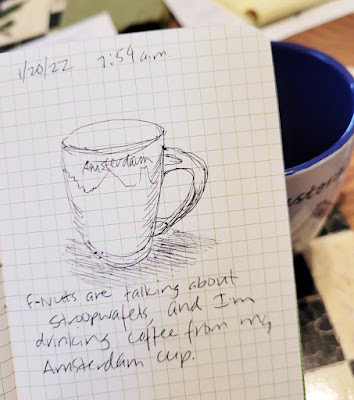 1/20/22 7:54 a.m.
Amsterdam
F-Nuts are talking about
stroopwafels, and I'm
drinking coffee from my
Amsterdam cup.